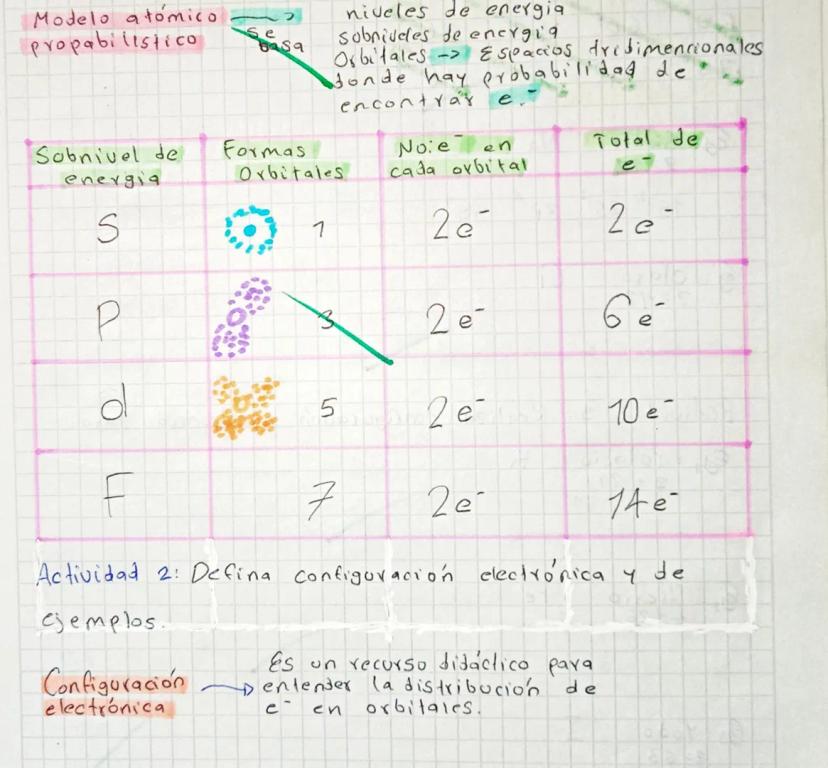 Modelo atómico
propabilístico
se
basa
niveles de energia
sobniveles de energia
Orbitales -> Espacios tridimencionales
donde hay probabilidad de
encontrar e.⁻
Sobnivel de
energia
Formas
Orbitales
No: e⁻ en
cada orbital
Total de
e⁻
S 1 2e⁻ 2e⁻
P 3 2e⁻ 6e⁻
d 5 2e⁻ 10e⁻
F 7 2e⁻ 14e⁻
Actividad 2: Defina configuración electrónica y de
ejemplos.
Configuración
electrónica
Es un recurso didáctico para
entender la distribución de
e⁻ en orbitales.